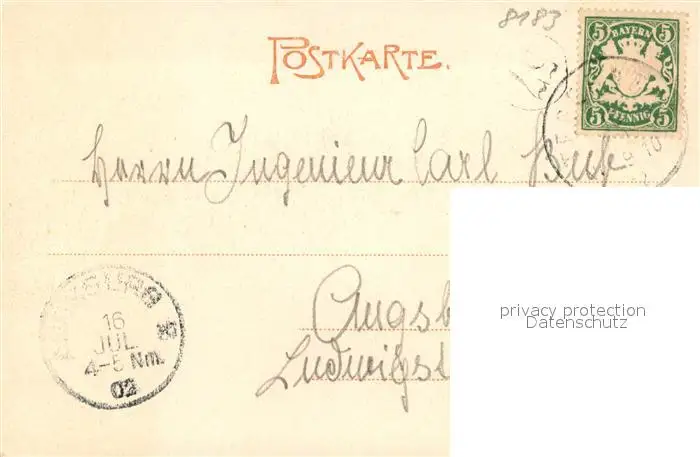 8183
POSTKARTE.
BAYERN
5 5
5 PFENNIG 5
Herrn Ingenieur Carl
AUGSBURG
16
JUL
4-5 Nm.
02
Augsb
Ludwigst
privacy protection
Datenschutz